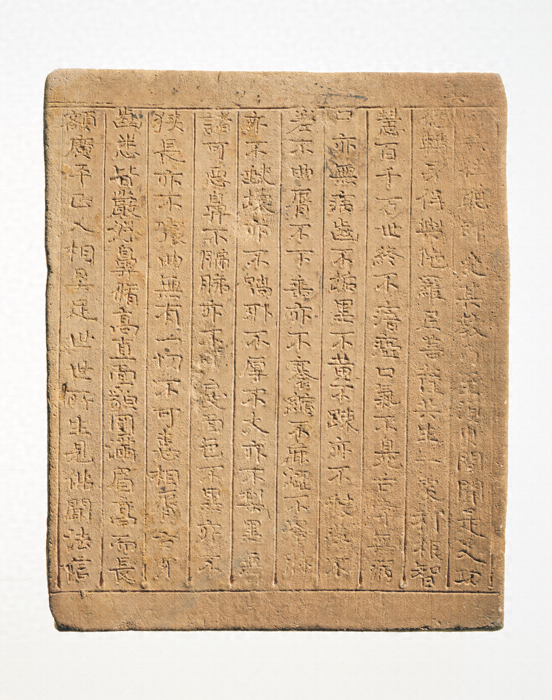 聽即受其教乃至須臾間聞是人功
德轉身得與陀羅尼菩薩共生一處利根智
慧百千万世終不瘖瘂口氣不臭舌常無病
口亦無病齒不垢黑不黄不踈亦不缺落不
差不曲脣不下垂亦不褰縮不麁澀不瘡胗
亦不缺壞亦不喎邪不厚不大亦不梨黑無
諸可惡鼻不亦不曲戾面色不黑亦不
狹長亦不窊曲無有一切不可憙相脣舌牙
齒悉皆嚴好鼻脩高直面貌圓滿眉高而長
額廣平正人相具足世世所生見佛聞法信